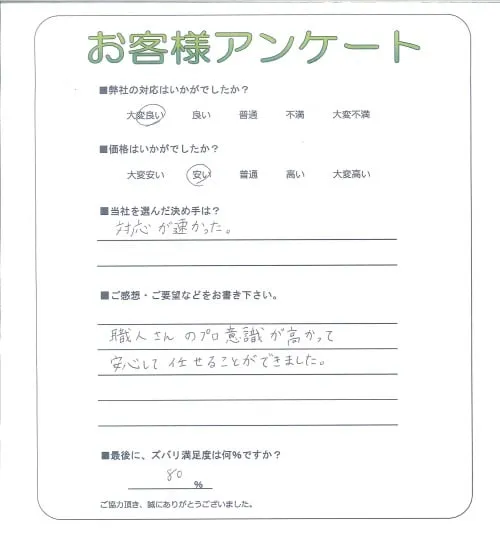 お客様アンケート
■弊社の対応はいかがでしたか？
大変良い 良い 普通 不満 大変不満
■価格はいかがでしたか？
大変安い 安い 普通 高い 大変高い
■当社を選んだ決め手は？
対応が速かった。
■ご感想・ご要望などをお書き下さい。
職人さんのプロ意識が高かって
安心して任せることができました。
■最後に、ズバリ満足度は何%ですか？
80 %
ご協力頂き、誠にありがとうございました。